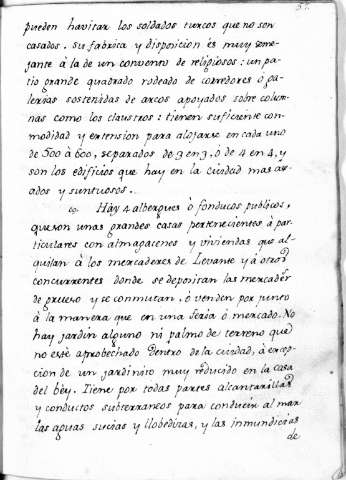 57.
pueden havitar los soldados turcos que no son
casados. su fabrica y disposicion es muy seme-
jante à la de un convento de religiosos: un pa-
tio grande quadrado rodeado de corredores ô ga-
lerias sostenidas de arcos apoyados sobre colum-
nas como los claustros: tienen suficiente com-
modidad y extension para alojarse en cada uno
de 500 à 600, separados de 3 en 3, ô de 4 en 4, y
son los edificios que hay en la ciudad mas ase-
ados y suntuosos.
Háy 4 albergues ô fonducos publicos,
que son unas grandes casas pertenecientes â par-
ticulares con almagacenes y viviendas que al-
quilan â los mercaderes de Levante y â otros
concurrentes donde se depositan las mercader.s
de grueso y se conmutan, ô venden por junto
â la manera que en una feria ô mercado. No
hay jardin alguno ni palmo de terreno que
no esté aprobechado dentro de la ciudad, â excep-
cion de un jardinito muy reducido en la casa
del bèy. Tiene por todas partes alcantarillas
y conductos subterraneos para conducir al mar
las aguas sucias y llobedizas, y las inmundicias
de